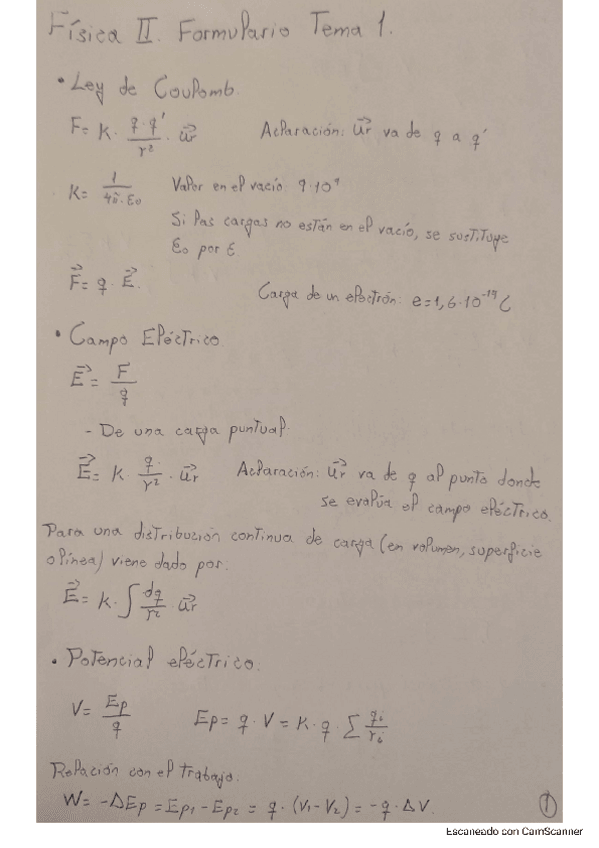 Física II. Formulario Tema 1.
• Ley de Coulomb.
F = K · q·q' / r² · u⃗r Aclaración: u⃗r va de q a q'
K = 1 / 4π·ε₀ Valor en el vacío 9·10⁹
Si las cargas no están en el vacío, se sustituye
ε₀ por ε
F⃗ = q · E⃗. Carga de un electrón: e = 1,6·10⁻¹⁹ C
• Campo Eléctrico.
E⃗ = F / q
- De una carga puntual.
E⃗ = K · q / r² · u⃗r Aclaración: u⃗r va de q al punto donde
se evalúa el campo eléctrico.
Para una distribución continua de carga (en volumen, superficie
o línea) viene dado por:
E⃗ = K · ∫ dq / r² · u⃗r
• Potencial eléctrico.
V = Ep / q Ep = q · V = K · q · Σ qᵢ / rᵢ
Relación con el trabajo.
W = -ΔEp = Ep₁ - Ep₂ = q · (V₁ - V₂) = -q · ΔV.
1
Escaneado con CamScanner